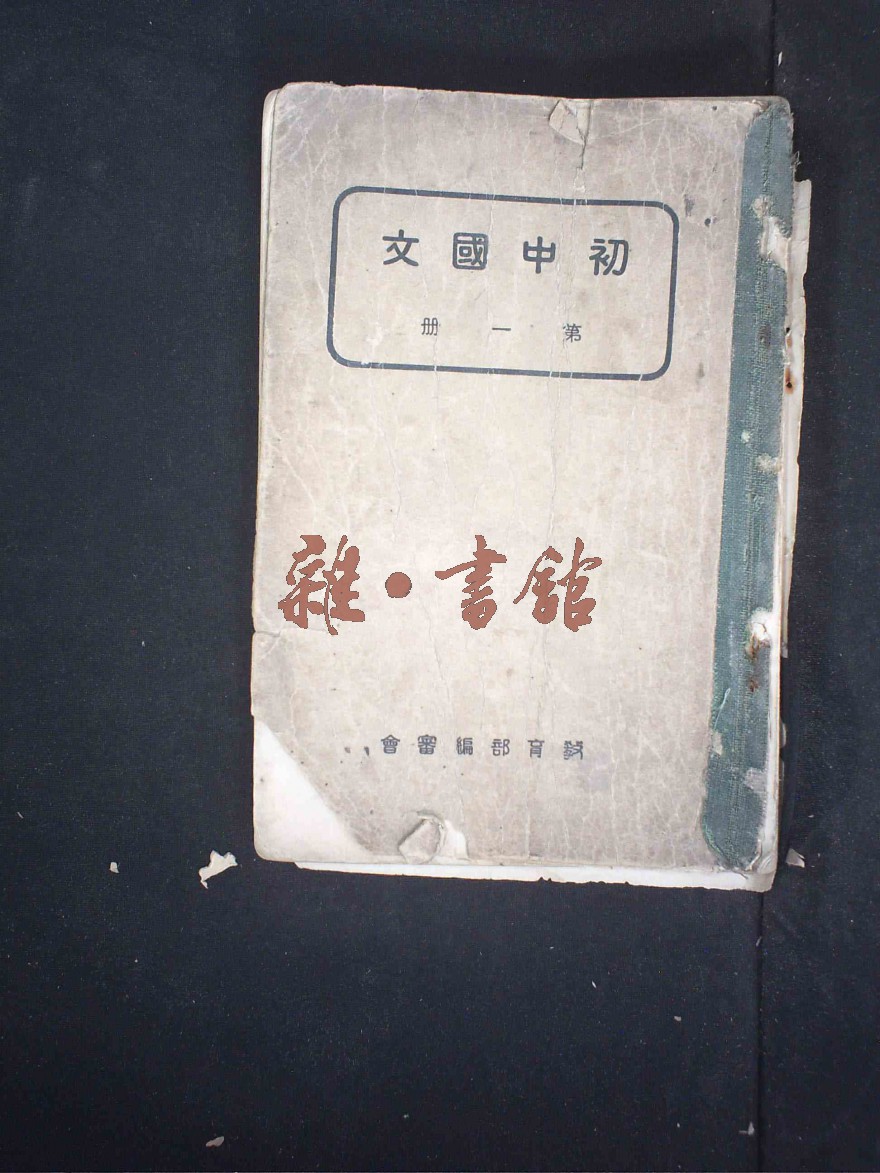 初中國文
第一册
雜·書館
教育部編審會